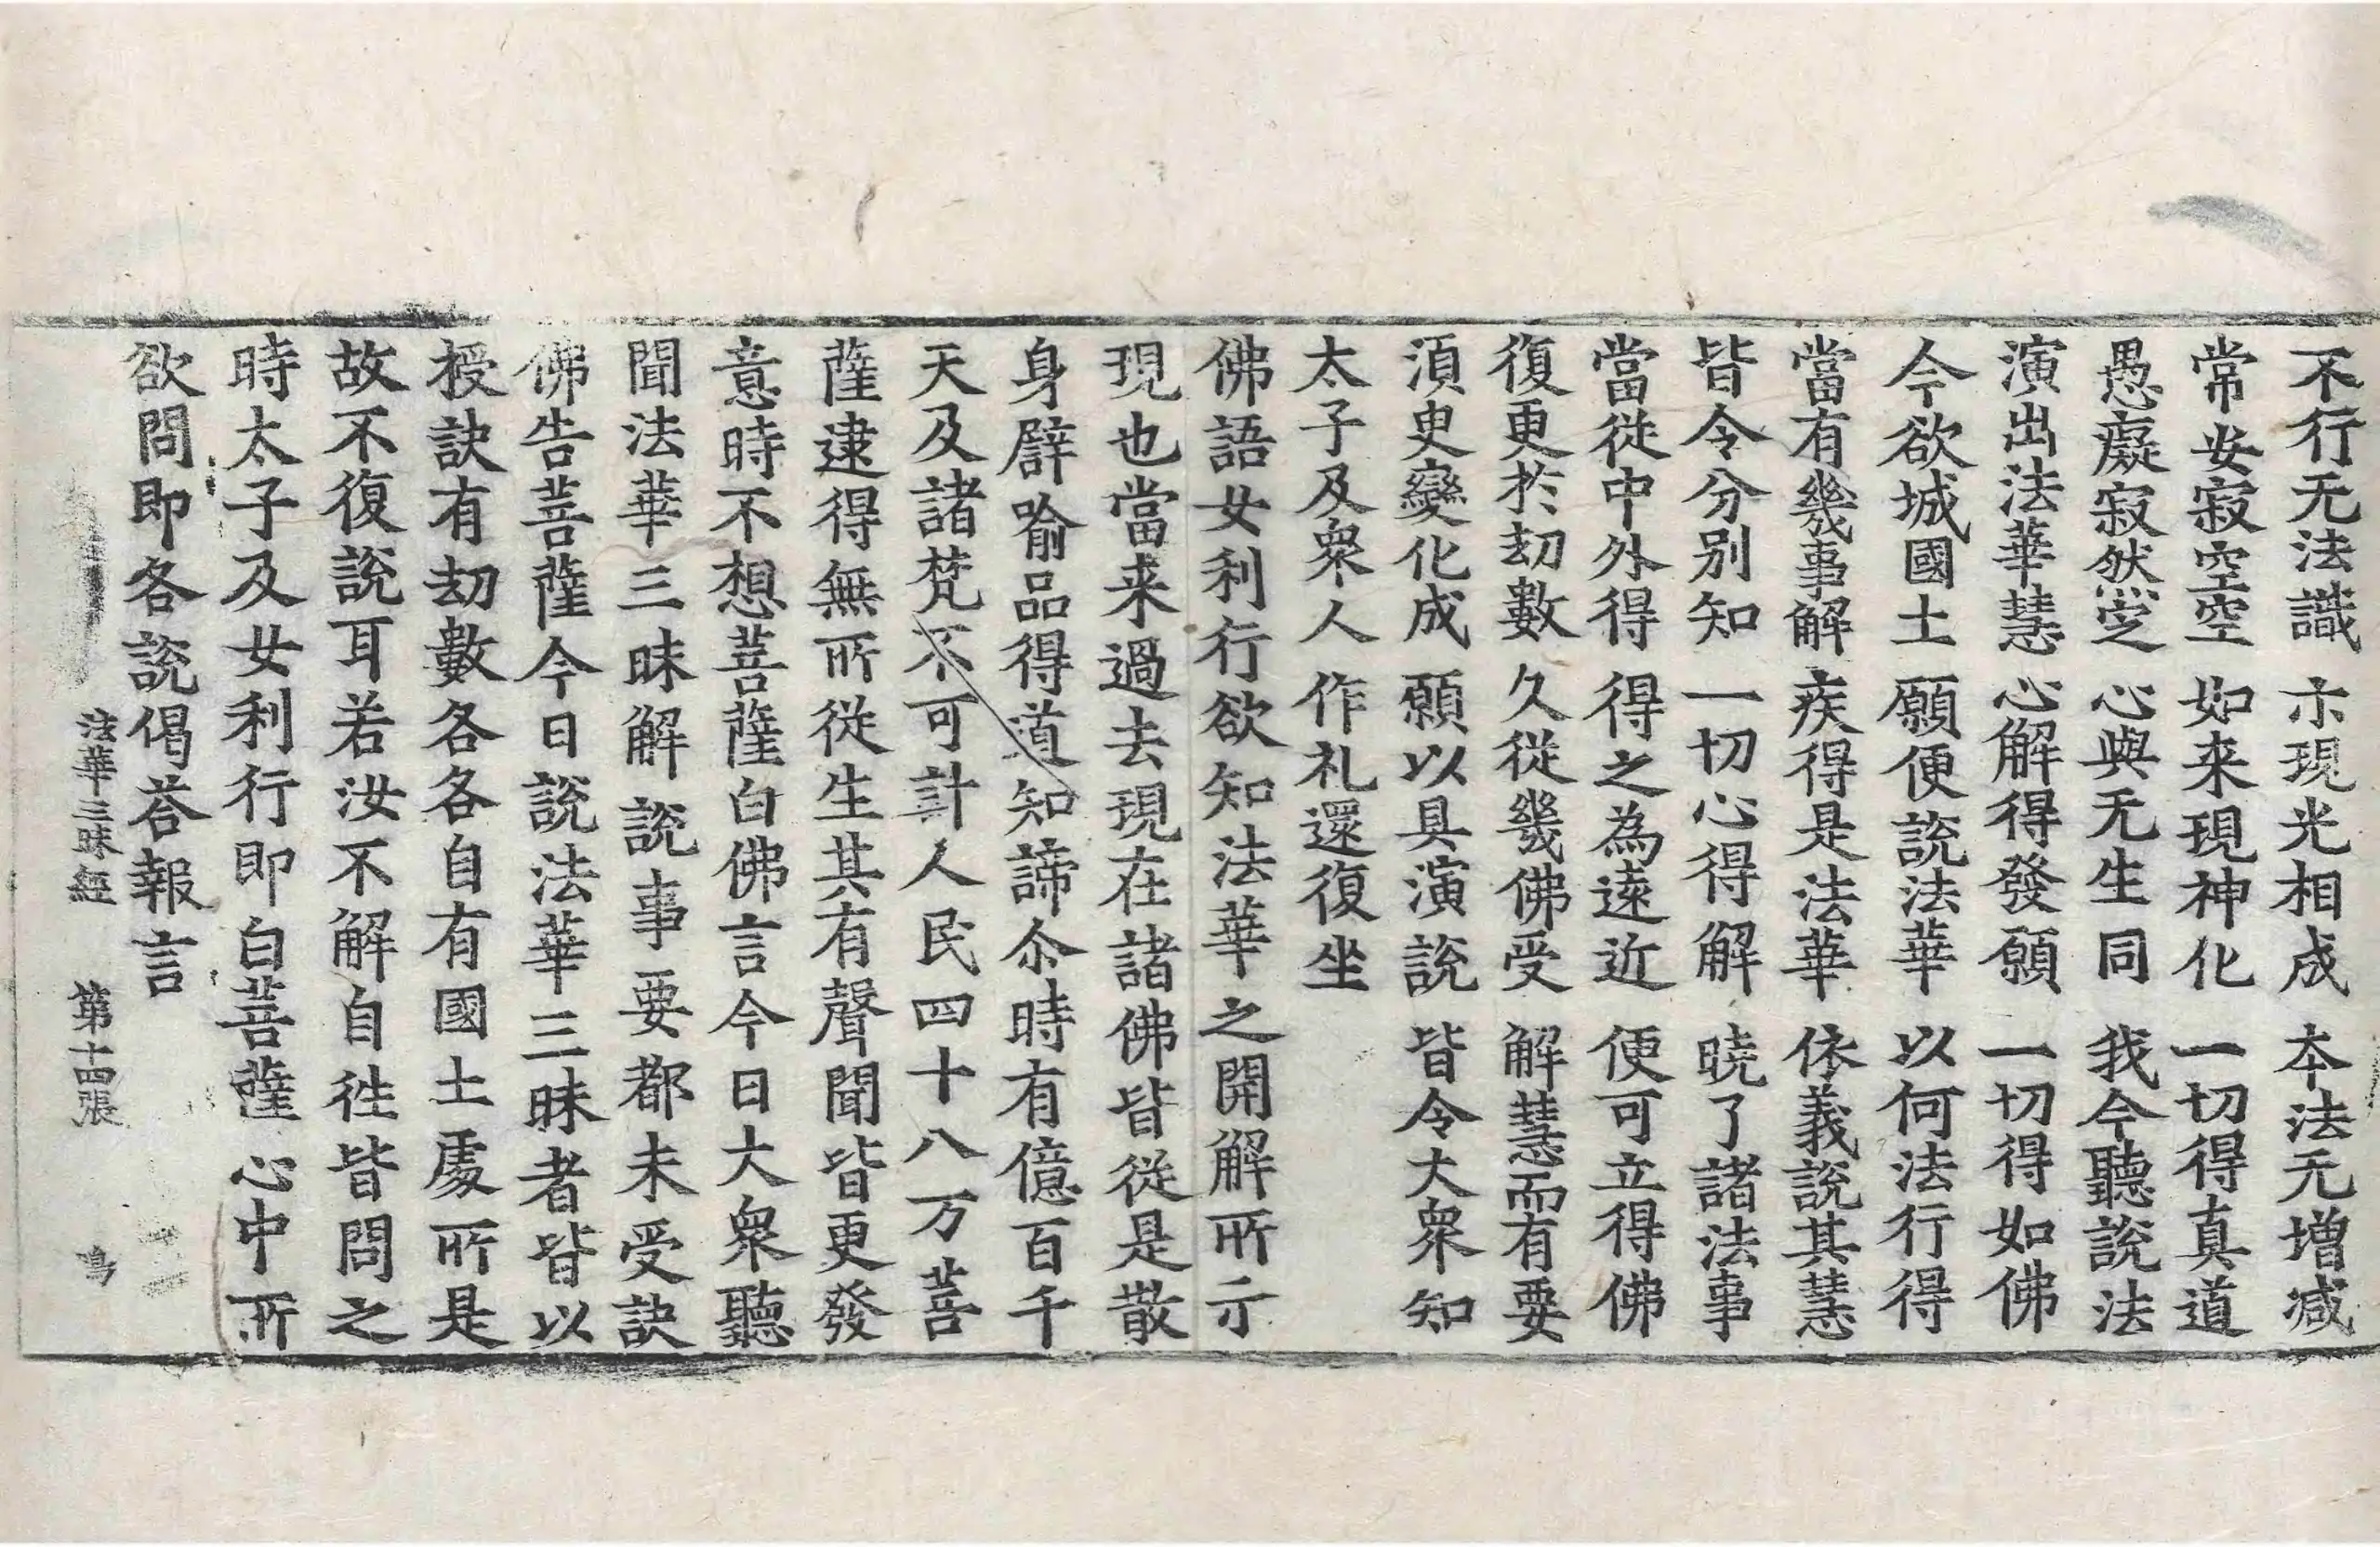 不行无法識 示現光相成 本法无增减
常安寂空空 如来現神化 一切得真道
愚癡寂然定 心與无生同 我今聽說法
演出法華慧 心解得發願 一切得如佛
今欲城國土 願便說法華 以何法行得
當有幾事解 疾得是法華 依義說其慧
皆令分別知 一切心得解 曉了諸法事
當從中外得 得之為遠近 便可立得佛
復更於劫數 久從幾佛受 解慧而有要
須臾變化成 願以具演說 皆令大衆知
太子及衆人 作礼還復坐
佛語女利行欲知法華之開解所示
現也當来過去現在諸佛皆從是散
身譬喻品得道知諦尒時有億百千
天及諸梵不可計人民四十八万菩
薩逮得無所從生其有聲聞皆更發
意時不想菩薩白佛言今日大衆聽
聞法華三昧解說事要都未受訣
佛告菩薩今日說法華三昧者皆以
授訣有劫數各各自有國土處所是
故不復說耳若汝不解自往皆問之
時太子及女利行即白菩薩心中所
欲問即各說偈荅報言
法華三昧經 第十四張 鳴